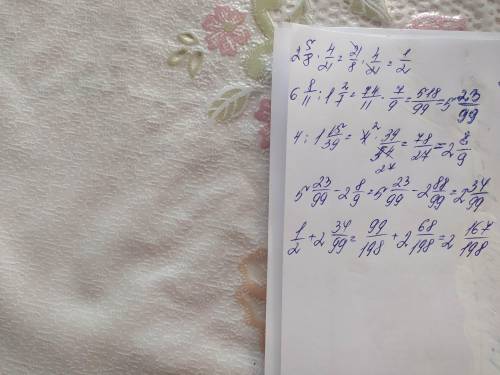 2 5/8 · 4/21 = 21/8 · 4/21 = 1/2
6 8/11 : 1 2/7 = 74/11 · 7/9 = 518/99 = 5 23/99
4 : 1 15/39 = 4 2 · 39/54 27 = 78/27 = 2 8/9
5 23/99 - 2 8/9 = 5 23/99 - 2 88/99 = 2 34/99
1/2 + 2 34/99 = 99/198 + 2 68/198 = 2 167/198